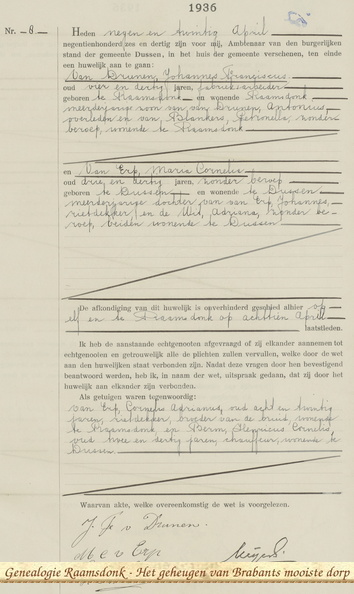 1936
Nr. - 8 -
Heden negen en twintig April
negentienhonderd zes en dertig zijn voor mij, Ambtenaar van den burgerlijken
stand der gemeente Dussen, in het huis der gemeente verschenen, ten einde
een huwelijk aan te gaan:
Van Drunen, Johannes Franciscus
oud vier en dertig jaren, fabrieksarbeider
geboren te Raamsdonk en wonende Raamsdonk
meerderjarige zoon van van Drunen, Antonius,
overleden en van Blankers, Petronella, zonder
beroep, wonende te Raamsdonk
en Van Erp, Maria Cornelia
oud drie en dertig jaren, zonder beroep
geboren te Dussen en wonende te Dussen
meerderjarige dochter van van Erp, Johannes,
rietdekker en de Wed, Adriana, zonder be-
roep, beiden wonende te Dussen
De afkondiging van dit huwelijk is onverhinderd geschied alhier op
elf en te Raamsdonk op achttien April
laatstleden.
Ik heb de aanstaande echtgenooten afgevraagd of zij elkander aannemen tot
echtgenooten en getrouwelijk alle de plichten zullen vervullen, welke door de wet
aan den huwelijken staat verbonden zijn. Nadat deze vragen door hen bevestigend
beantwoord werden, heb ik, in naam der wet, uitspraak gedaan, dat zij door het
huwelijk aan elkander zijn verbonden.
Als getuigen waren tegenwoordig:
van Erp, Cornelis Adrianus, oud acht en twintig
jaren, rietdekker, broeder van de bruid, wonende
te Raamsdonk en Henricus Cornelis,
oud twee en dertig jaren, chauffeur, wonende te
Dussen
Waarvan akte, welke overeenkomstig de wet is voorgelezen.
J. Fr v Drunen.
M C v Erp
Genealogie Raamsdonk - Het geheugen van Brabants mooiste dorp